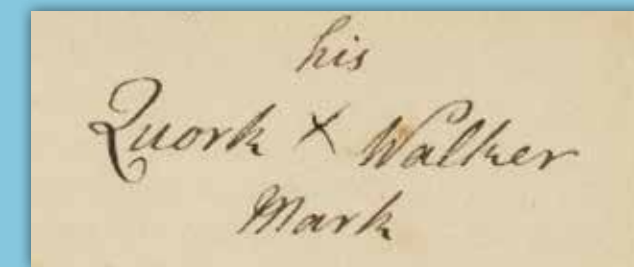 his
Quork X Walker
Mark